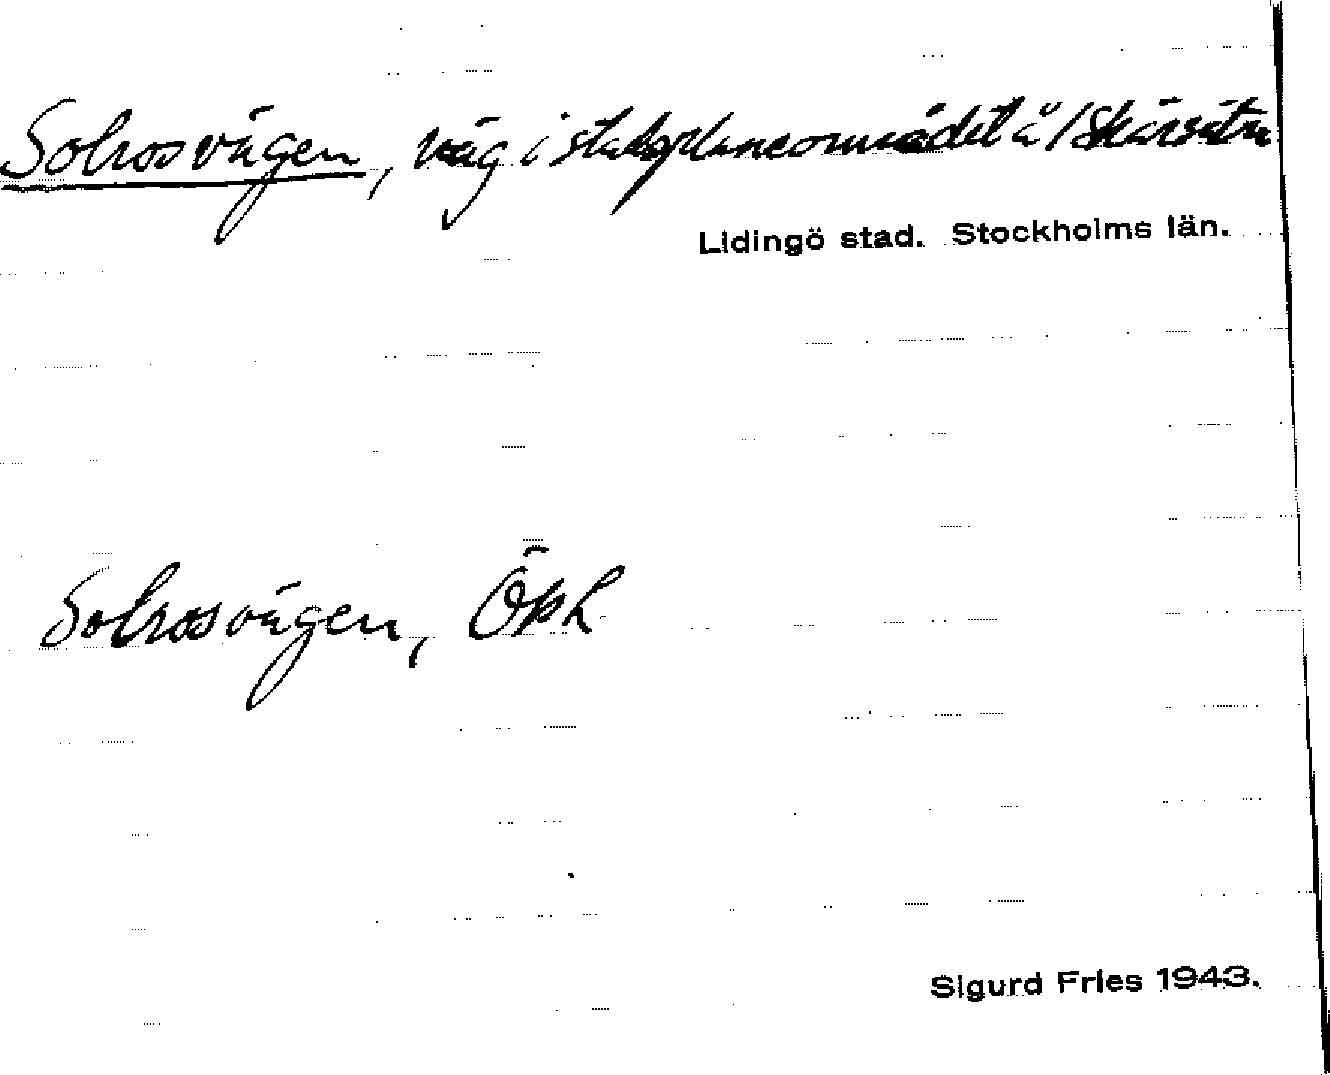 Solrosvägen, väg i stadsplaneområdet å Skärsätra
Lidingö stad. Stockholms län.
Solrosvägen, Öpk
Sigurd Fries 1943.